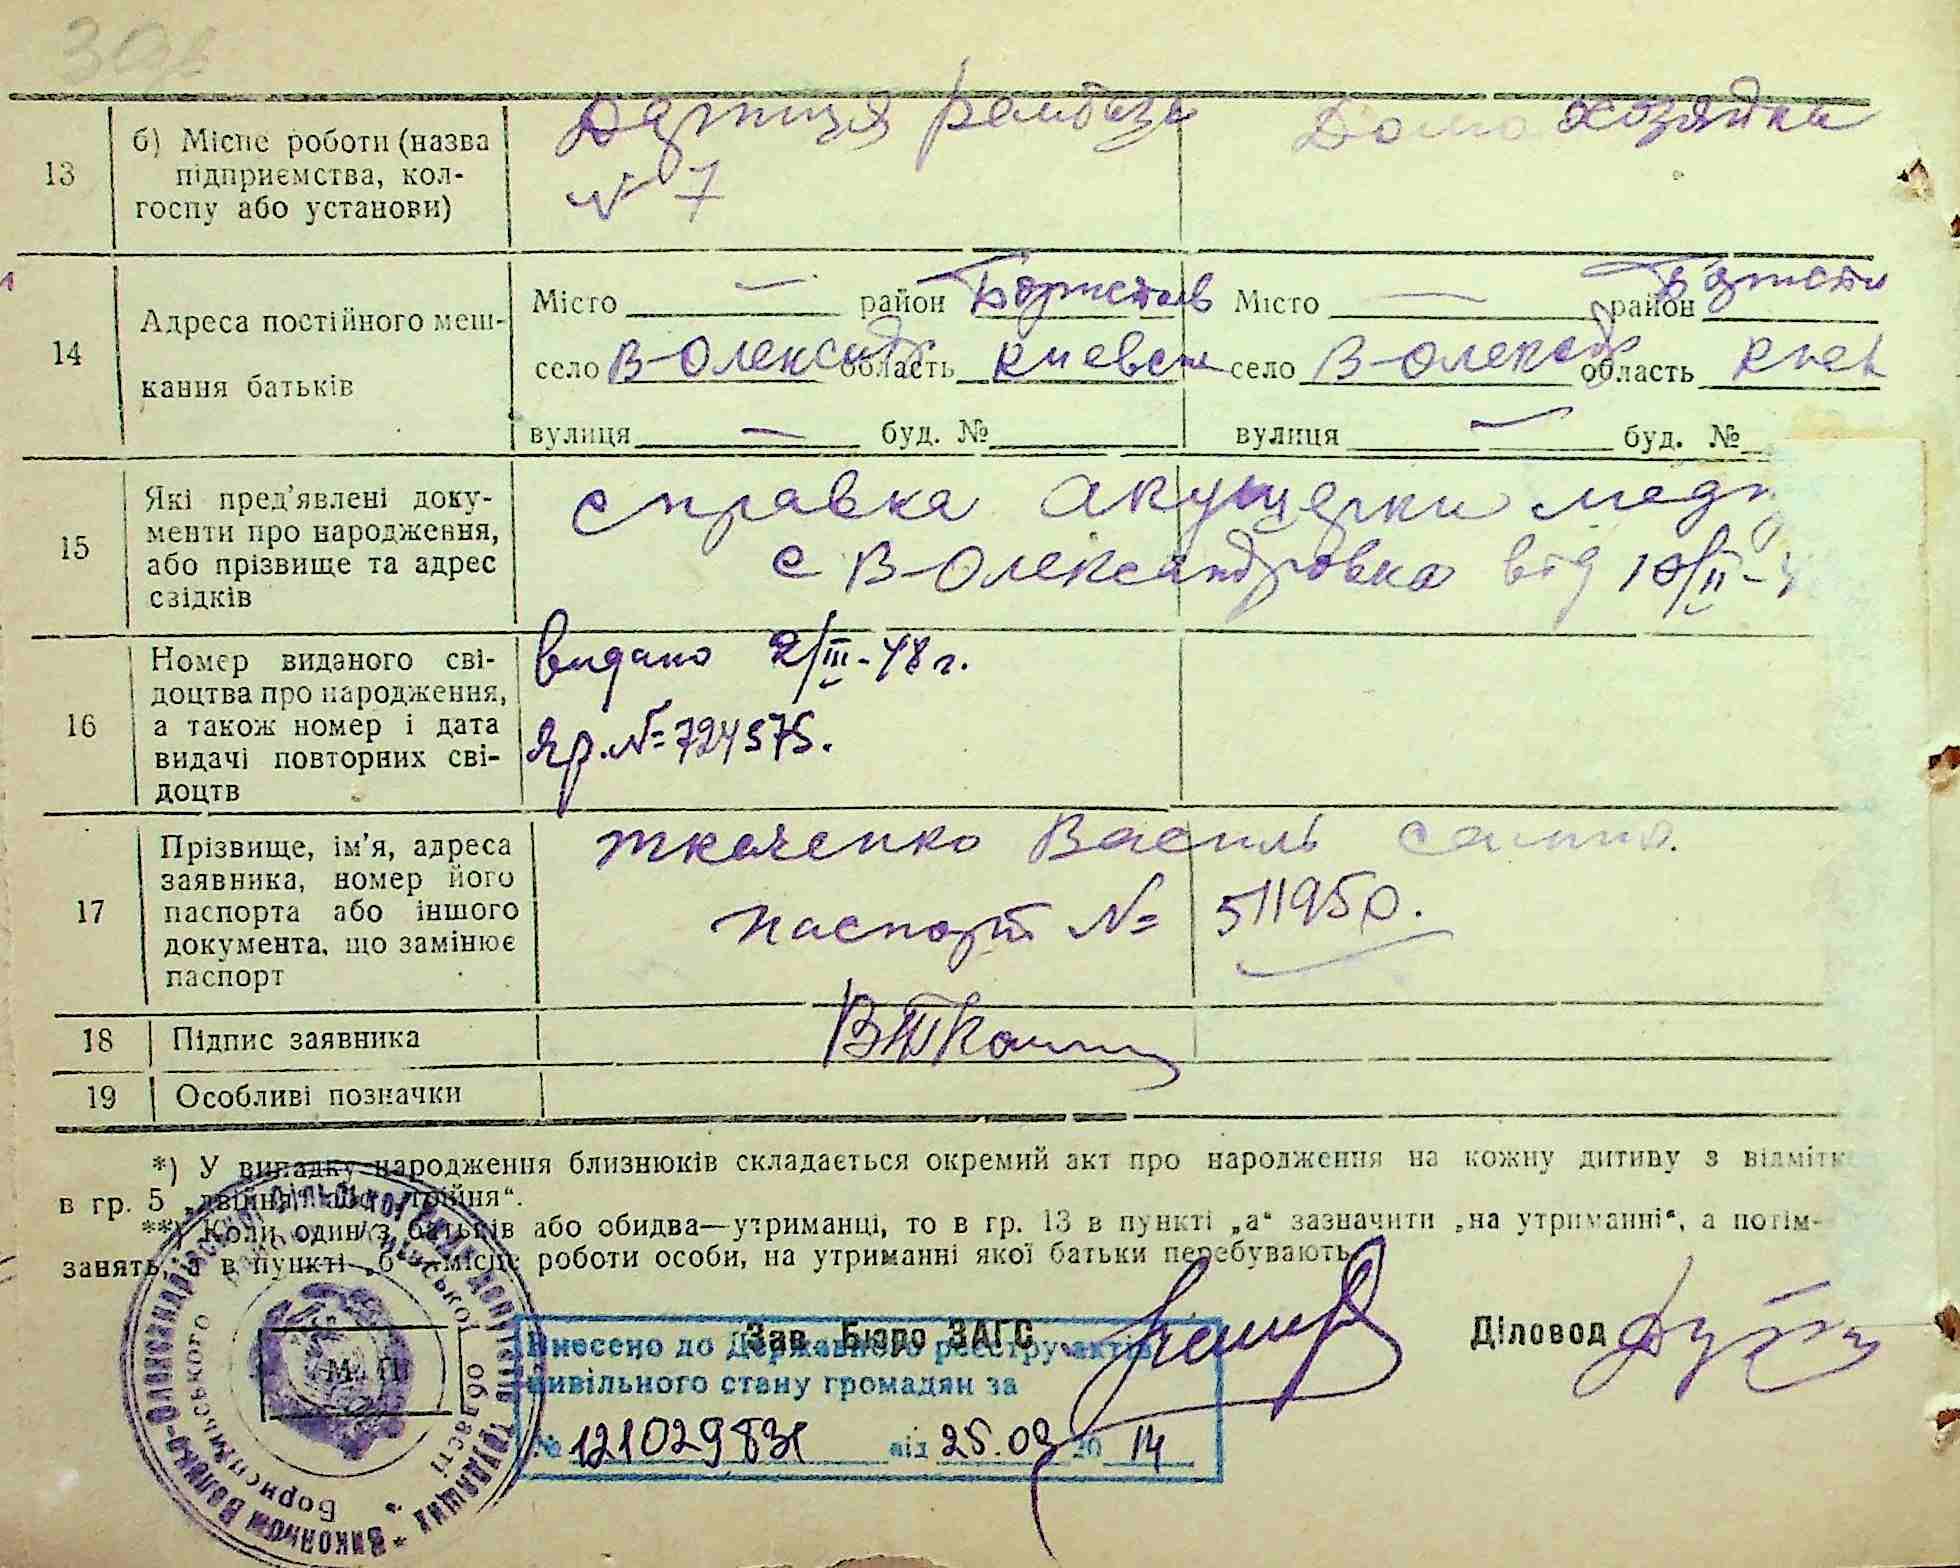 13 б) Місце роботи (назва підприємства, колгоспу або установи)
Дарниця рембаза
№ 7
Домохозяйка
14 Адреса постійного мешкання батьків
Місто — район
село В-Олександр область Киевськ
вулиця — буд. №
Місто — район
село В-Олександ область Киев
вулиця — буд. №
15 Які пред'явлені документи про народження, або прізвище та адрес свідків
справка акушерки
с В-Олександровка від 10/II-
16 Номер виданого свідоцтва про народження, а також номер і дата видачі повторних свідоцтв
видано 2/III-48 г.
Яр. №=724575.
17 Прізвище, ім'я, адреса заявника, номер його паспорта або іншого документа, що замінює паспорт
Ткаченко Василь
паспорт № 511950.
18 Підпис заявника
19 Особливі позначки
*) У випадку народження близнюків складається окремий акт про народження на кожну дитину з відмітк
в гр. 5 „двійня“ або „трійня“.
**) Коли один з батьків або обидва—утриманці, то в гр. 13 в пункті „а“ зазначити „на утриманні“, а потім-
занять, а в пункті „б“ місце роботи особи, на утриманні якої батьки перебувають.
Зав. Бюро ЗАГС
Діловод
М. П.
Внесено до Державного реєстру актів
цивільного стану громадян за
№ 121029831 від 25.09 20 14